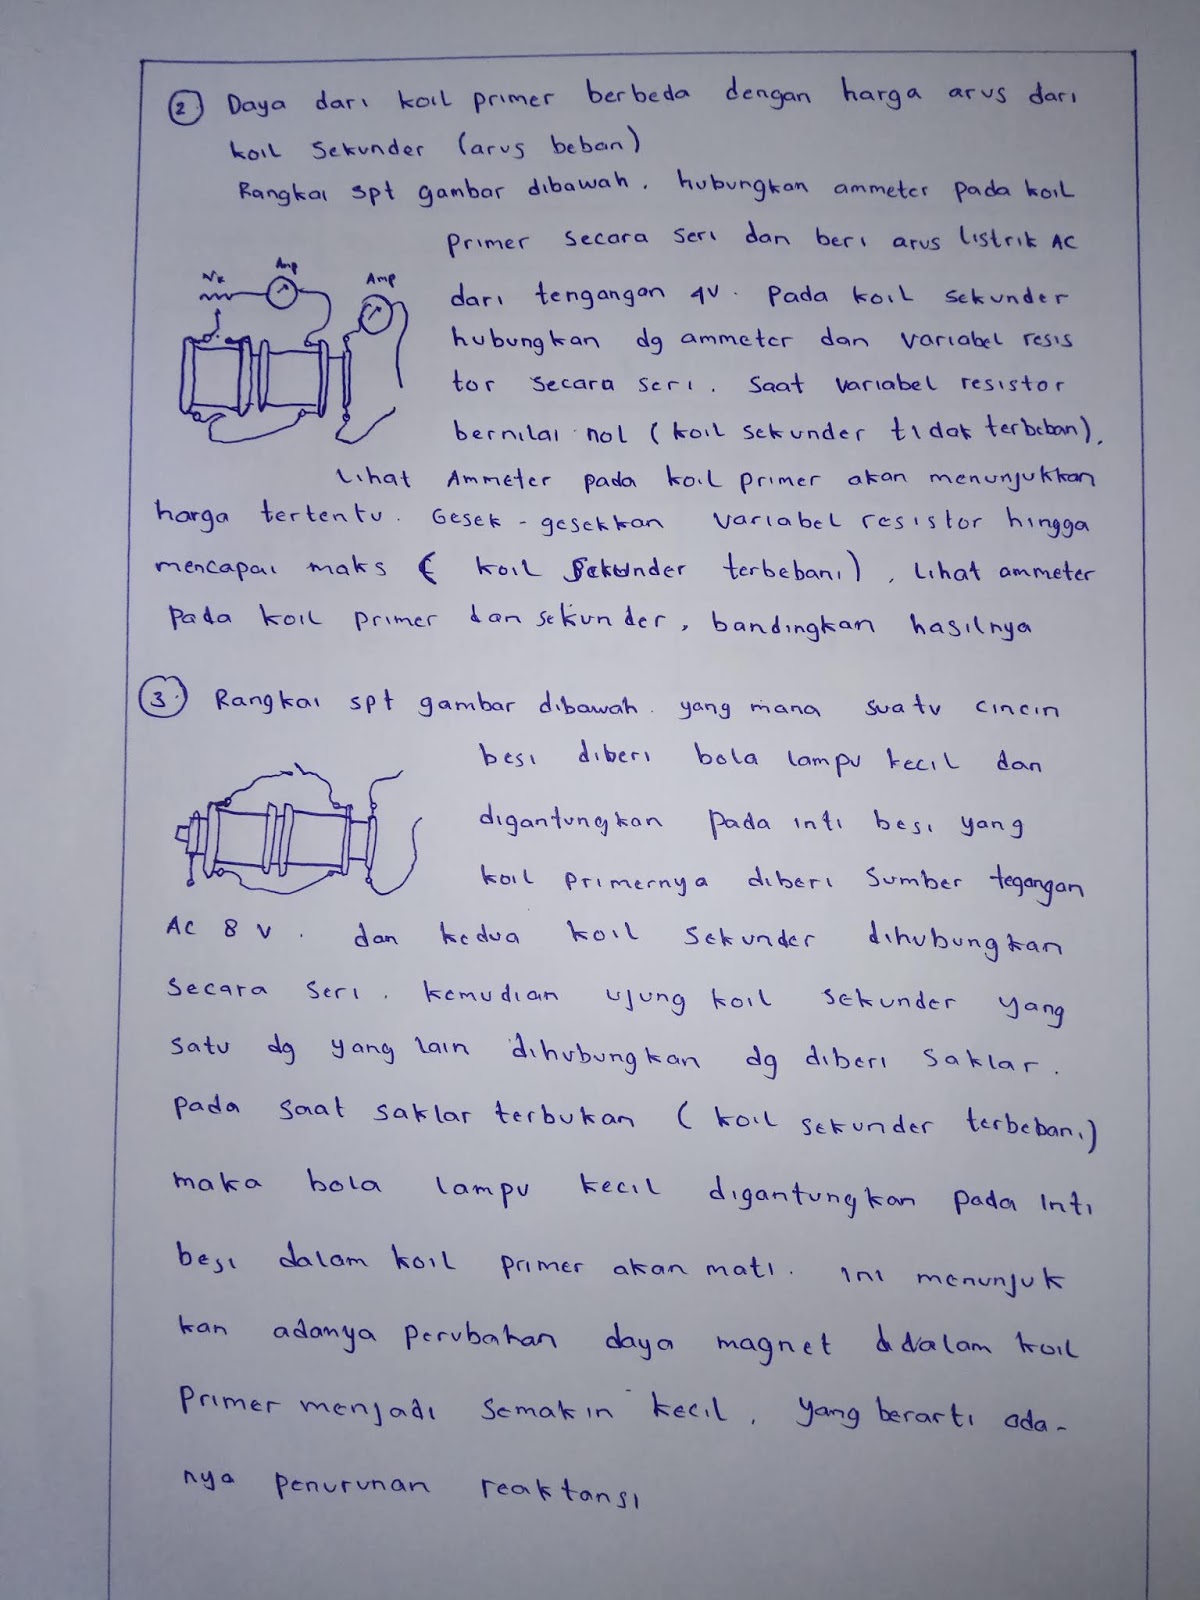 2. Daya dari koil primer berbeda dengan harga arus dari
koil sekunder (arus beban)
Rangkai spt gambar dibawah. hubungkan ammeter pada koil
primer secara seri dan beri arus listrik AC
dari tengangan 4V. Pada koil sekunder
hubungkan dg ammeter dan variabel resis
tor secara seri. Saat variabel resistor
bernilai nol (koil sekunder tidak terbeban),
VR
Amp
Amp
Lihat Ammeter pada koil primer akan menunjukkan
harga tertentu. Gesek-gesekkan variabel resistor hingga
mencapai maks (koil sekunder terbebani), lihat ammeter
pada koil primer dan sekunder, bandingkan hasilnya
3. Rangkai spt gambar dibawah. yang mana suatu cincin
besi diberi bola lampu kecil dan
digantungkan pada inti besi yang
koil primernya diberi sumber tegangan
AC 8 V. dan kedua koil sekunder dihubungkan
secara seri. kemudian ujung koil sekunder yang
satu dg yang lain dihubungkan dg diberi saklar.
pada saat saklar terbukan (koil sekunder terbebani)
maka bola lampu kecil digantungkan pada inti
besi dalam koil primer akan mati. ini menunjuk
kan adanya perubahan daya magnet didalam koil
primer menjadi semakin kecil, yang berarti ada-
nya penurunan reaktansi